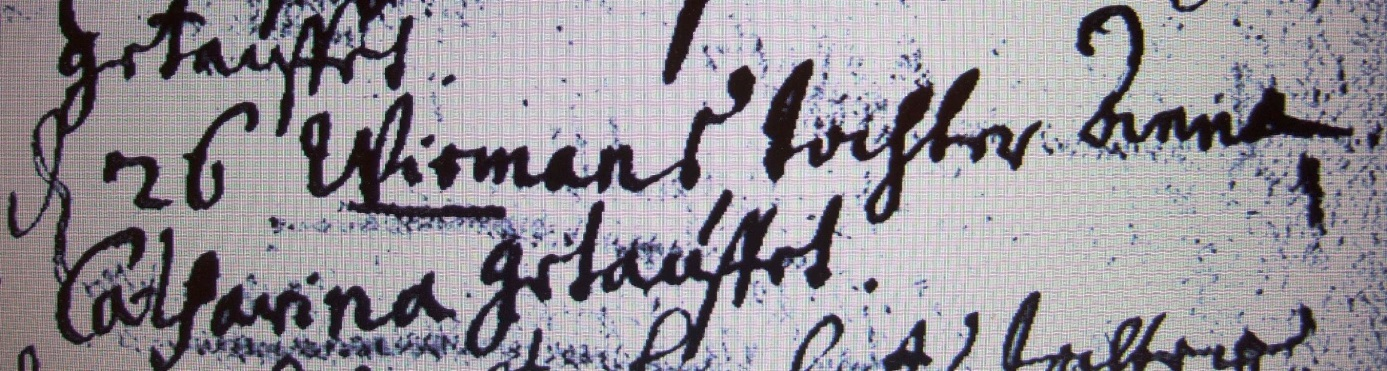 getauffet.
d 26 Wiemans tochter Anna
Catharina getauffet.